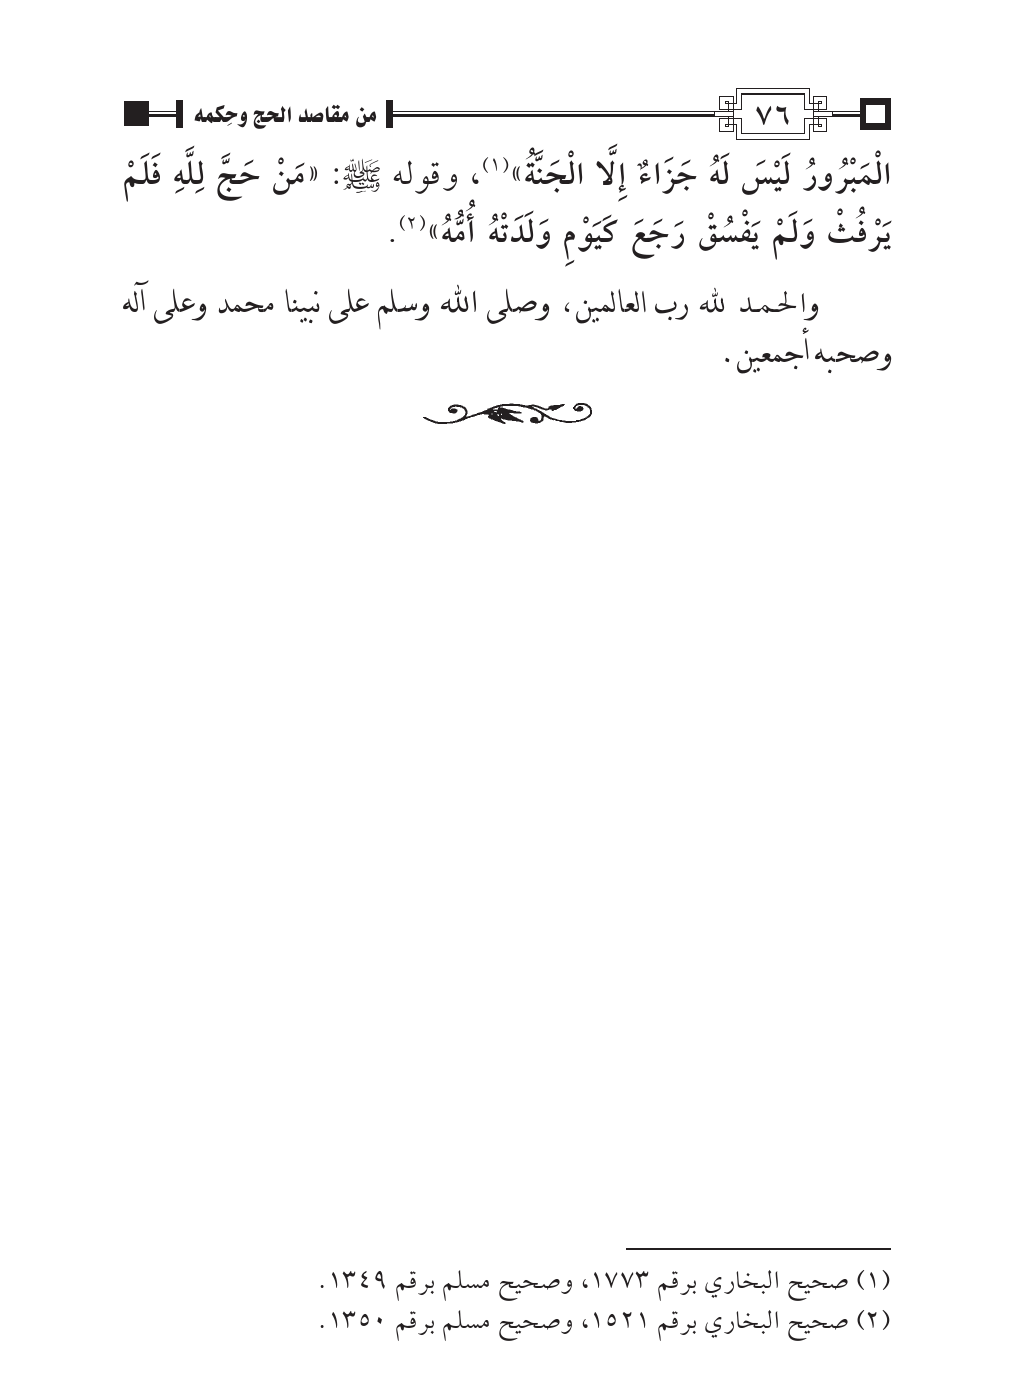 ٧٦ من مقاصد الحج وحِكمه
الْمَبْرُورُ لَيْسَ لَهُ جَزَاءٌ إِلَّا الْجَنَّةُ»(١)، وقوله ﷺ: «مَنْ حَجَّ لِلَّهِ فَلَمْ
يَرْفُثْ وَلَمْ يَفْسُقْ رَجَعَ كَيَوْمِ وَلَدَتْهُ أُمُّهُ»(٢).
والحمد لله رب العالمين، وصلى الله وسلم على نبينا محمد وعلى آله
وصحبه أجمعين.
(١) صحيح البخاري برقم ١٧٧٣، وصحيح مسلم برقم ١٣٤٩.
(٢) صحيح البخاري برقم ١٥٢١، وصحيح مسلم برقم ١٣٥٠.